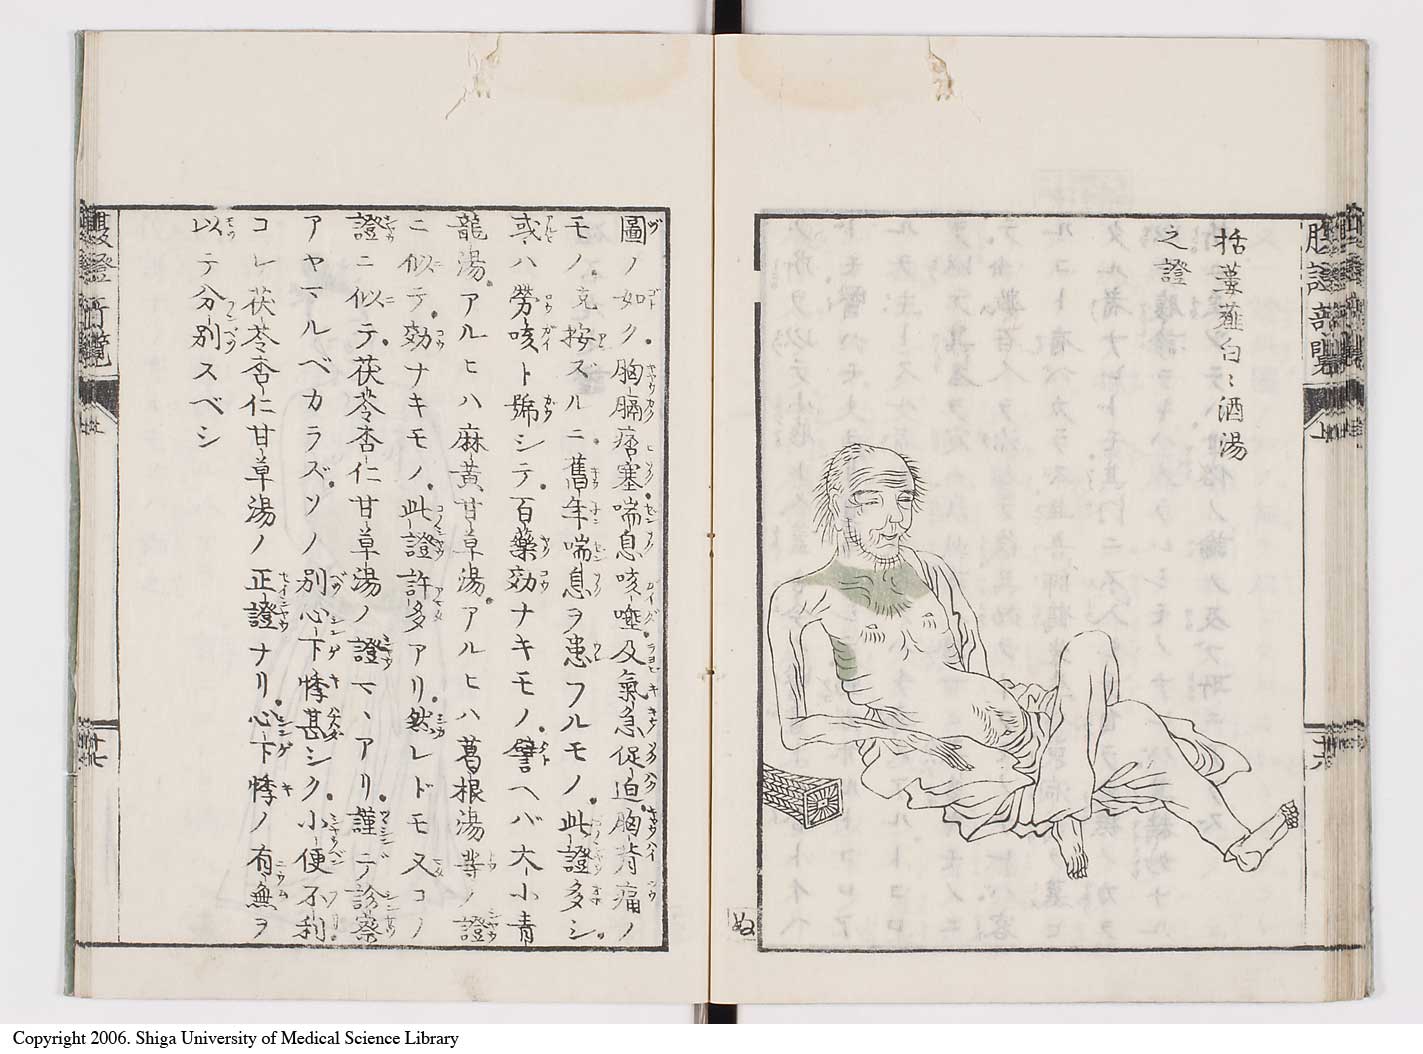 栝蔞薤白〻酒湯
之證
ぬ
圖ノ如ク。胸膈痞塞。喘息咳唾。及氣急促迫。胸背痛ノ
モノ。克按スルニ。舊年喘息ヲ患フルモノ。此證多シ。
或ハ勞咳ト號シテ。百藥効ナキモノ。譬ヘバ大小青
龍湯。アルヒハ麻黄甘草湯。アルヒハ葛根湯等ノ證
ニ似テ。効ナキモノ。此證許多アリ。然レドモ又コノ
證ニ似テ。茯苓杏仁甘草湯ノ證マヽアリ。謹デ診察
アヤマルベカラズ。ソノ別心下悸甚シク。小便不利。
コレ茯苓杏仁甘草湯ノ正證ナリ。心下悸ノ有無ヲ
以テ分別スベシ
Copyright 2006. Shiga University of Medical Science Library